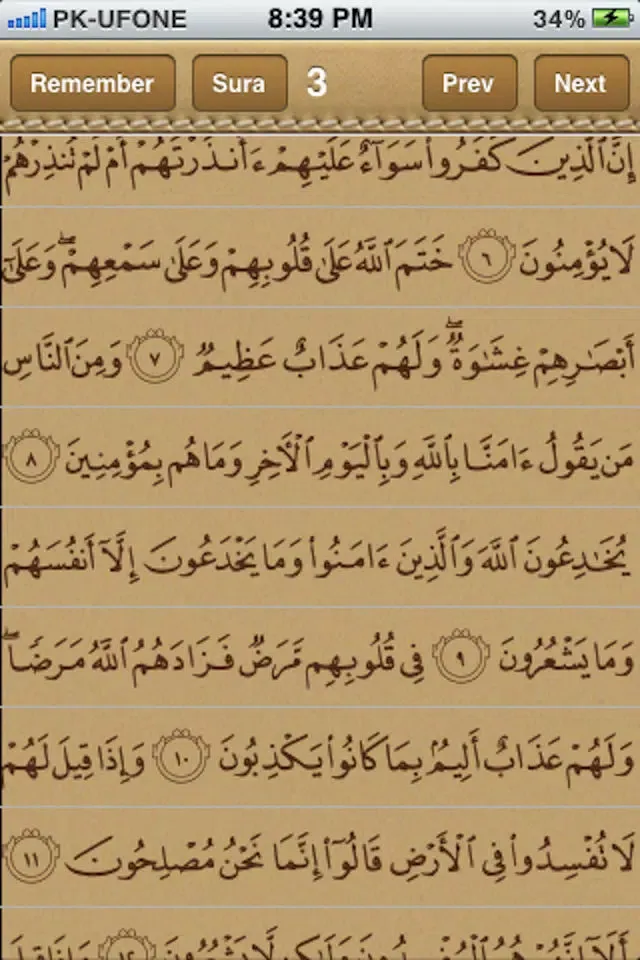 PK-UFONE 8:39 PM 34%
Remember Sura 3 Prev Next
إِنَّ ٱلَّذِينَ كَفَرُوا۟ سَوَآءٌ عَلَيْهِمْ ءَأَنذَرْتَهُمْ أَمْ لَمْ تُنذِرْهُمْ
لَا يُؤْمِنُونَ ٦ خَتَمَ ٱللَّهُ عَلَىٰ قُلُوبِهِمْ وَعَلَىٰ سَمْعِهِمْ ۖ وَعَلَىٰٓ
أَبْصَـٰرِهِمْ غِشَـٰوَةٌ ۖ وَلَهُمْ عَذَابٌ عَظِيمٌ ٧ وَمِنَ ٱلنَّاسِ
مَن يَقُولُ ءَامَنَّا بِٱللَّهِ وَبِٱلْيَوْمِ ٱلْـَٔاخِرِ وَمَا هُم بِمُؤْمِنِينَ ٨
يُخَـٰدِعُونَ ٱللَّهَ وَٱلَّذِينَ ءَامَنُوا۟ وَمَا يَخْدَعُونَ إِلَّآ أَنفُسَهُمْ
وَمَا يَشْعُرُونَ ٩ فِى قُلُوبِهِم مَّرَضٌ فَزَادَهُمُ ٱللَّهُ مَرَضًا ۖ
وَلَهُمْ عَذَابٌ أَلِيمٌۢ بِمَا كَانُوا۟ يَكْذِبُونَ ١٠ وَإِذَا قِيلَ لَهُمْ
لَا تُفْسِدُوا۟ فِى ٱلْأَرْضِ قَالُوٓا۟ إِنَّمَا نَحْنُ مُصْلِحُونَ ١١
أَلَآ إِنَّهُمْ هُمُ ٱلْمُفْسِدُونَ وَلَـٰكِن لَّا يَشْعُرُونَ ١٢ وَإِذَا قِيلَ